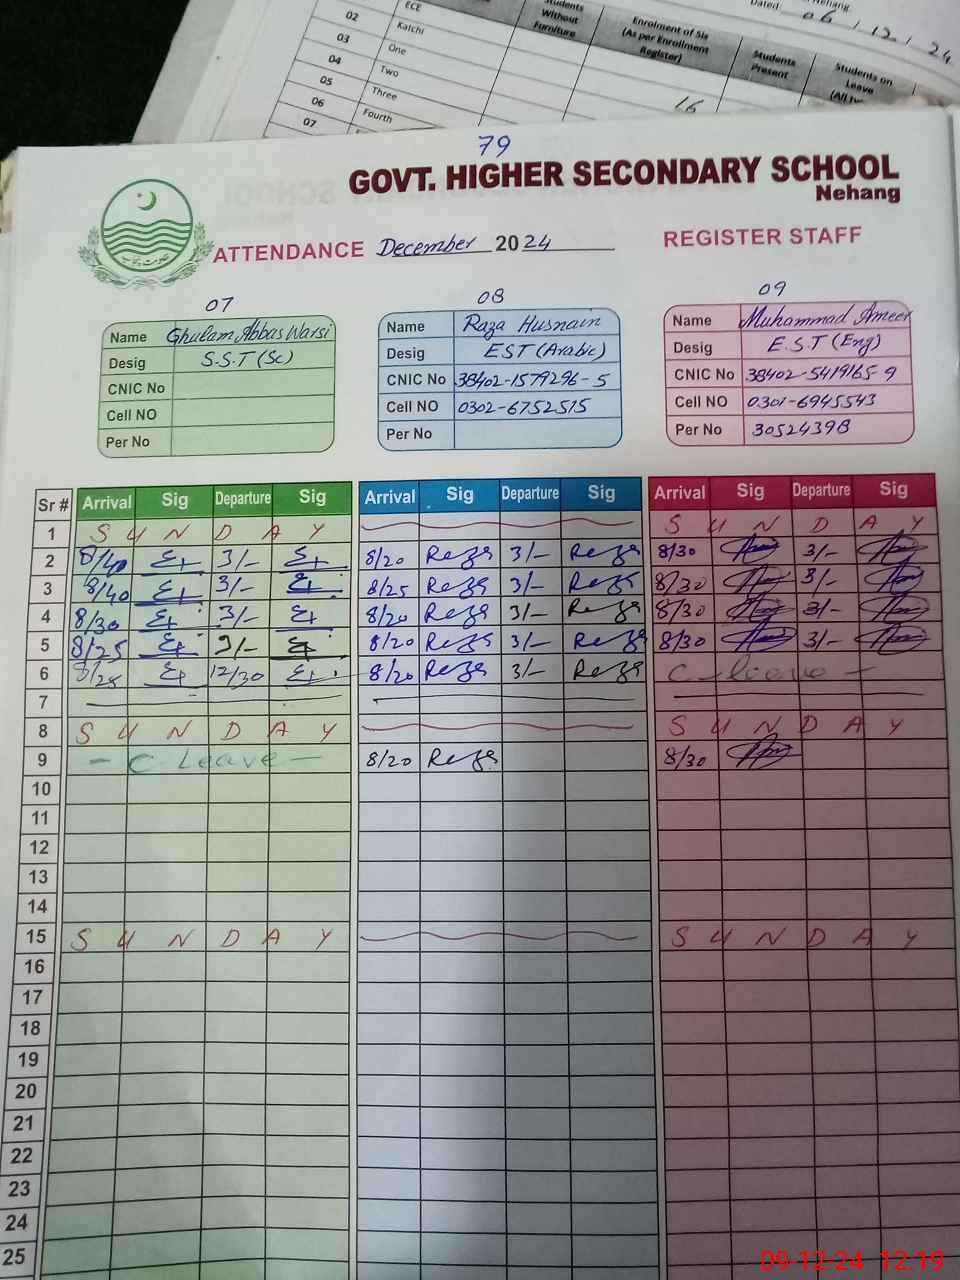 ECE
02 Katchi
03 One
04 Two
05 Three
06 Fourth
07
Students Without Furniture
Enrolment of Sis (As per Enrollment Register)
Students Present
Students on Leave
Nehang.
Dated: 06/12/24
16
79
GOVT. HIGHER SECONDARY SCHOOL
Nehang
ATTENDANCE December 2024 REGISTER STAFF
07 08 09
Name Ghulam Abbas Warsi
Desig S.S.T (Sc)
CNIC No
Cell NO
Per No
Name Raza Husnain
Desig EST (Arabic)
CNIC No 38402-1579296-5
Cell NO 0302-6752515
Per No
Name Muhammad Ameer
Desig E.S.T (Eng)
CNIC No 38402-5419165-9
Cell NO 0301-6945543
Per No 30524398
Sr # Arrival Sig Departure Sig Arrival Sig Departure Sig Arrival Sig Departure Sig
1 SUNDAY SUNDAY
2 8/40 3/- 8/20 3/- 8/30 3/-
3 8/40 3/- 8/25 3/- 8/30 3/-
4 8/30 3/- 8/20 3/- 8/30 3/-
5 8/25 3/- 8/20 3/- 8/30 3/-
6 8/25 12/30 8/20 3/- C-leave-
7
8 SUNDAY SUNDAY
9 - C Leave - 8/20 8/30
10
11
12
13
14
15 SUNDAY SUNDAY
16
17
18
19
20
21
22
23
24
25
09-12-24 12:19